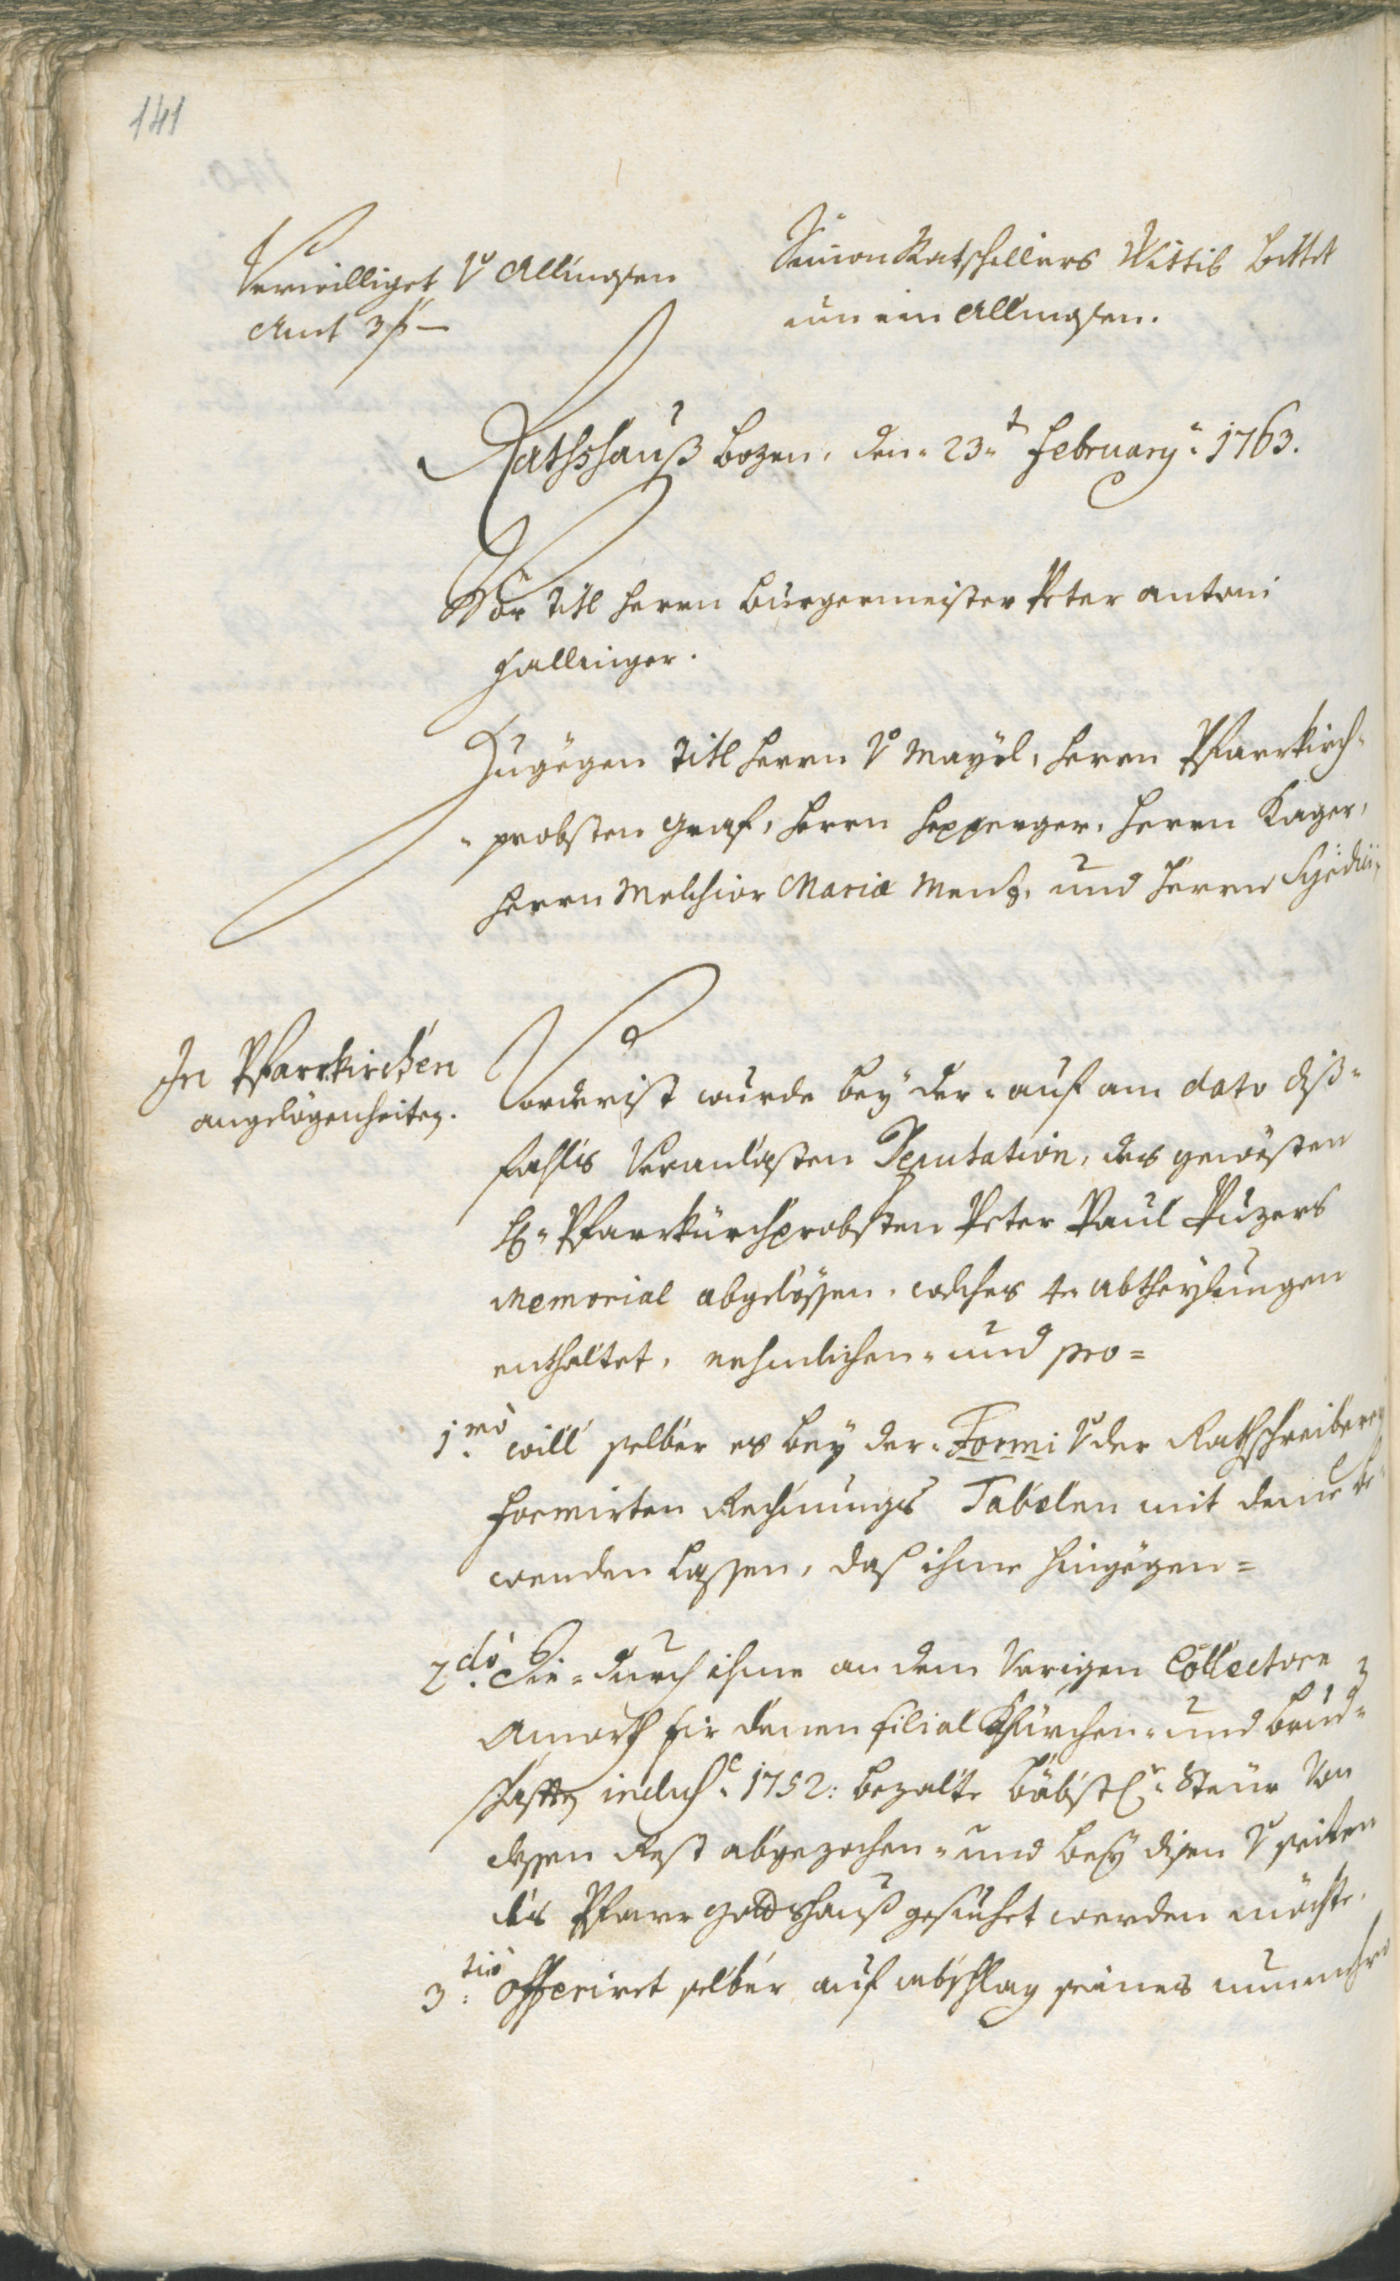 141
Verwilliget V Allmosen
Amt 3 f –
Simon Ratschillers Wittib bittet
um ein Allmosen.
Rathshauß Bozen, den 23.t February 1763.
Vor Titl Herrn Burgermeister Peter Antoni
Hallinger.
Zugegen Titl Herrn V Mayrl, Herrn Pfarrkirch=
probsten Graf, Herrn Hepperger, Herrn Kager,
Herrn Melchior Maria Menz, und Herrn
In Pfarrkirchen
angelögenheiten.
Vorderist wurde bey der auf am dato diß=
fahls veranlasten Deputation, des gewesten
H: Pfarrkürchprobsten Peter Paul Puzers
Memorial abgelössen, welches 4 Abtheylungen
enthaltet, nehmlichen und pro=
1.mo will selber es bey der Formi V der Rathschreiberey
formirten Rechnungs Tabelen mit deme be
wenden lassen, daß ihme hingegen=
2.do die durch ihme an dem vorigen Collectore
Amorth für denen filial Khürchen und Brud=
schafften inclus: 1752: bezalte Bäbstl: Steur von
dessen Rest abgezochen und bey disen V seiten
des Pfarr Gottshauß gesuchet werden möchte.
3.tio Offeriret selber auf abschlag seines nunmehro